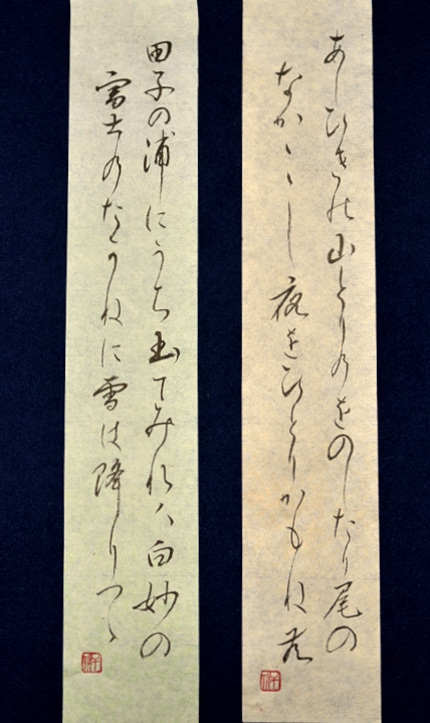 あしひきの山とりのをのしたり尾の
なかゝゝし夜をひとりかもね尤
田子の浦にうち出てみれハ白妙の
富士のたかねに雪は降りつゝ